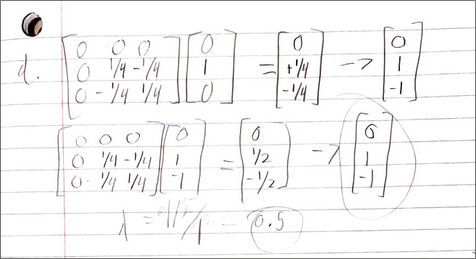 d. [0 0 0; 0 1/4 -1/4; 0 -1/4 1/4] [0; 1; 0] = [0; +1/4; -1/4] -> [0; 1; -1]
[0 0 0; 0 1/4 -1/4; 0 -1/4 1/4] [0; 1; -1] = [0; 1/2; -1/2] -> [0; 1; -1]
λ = 0.5